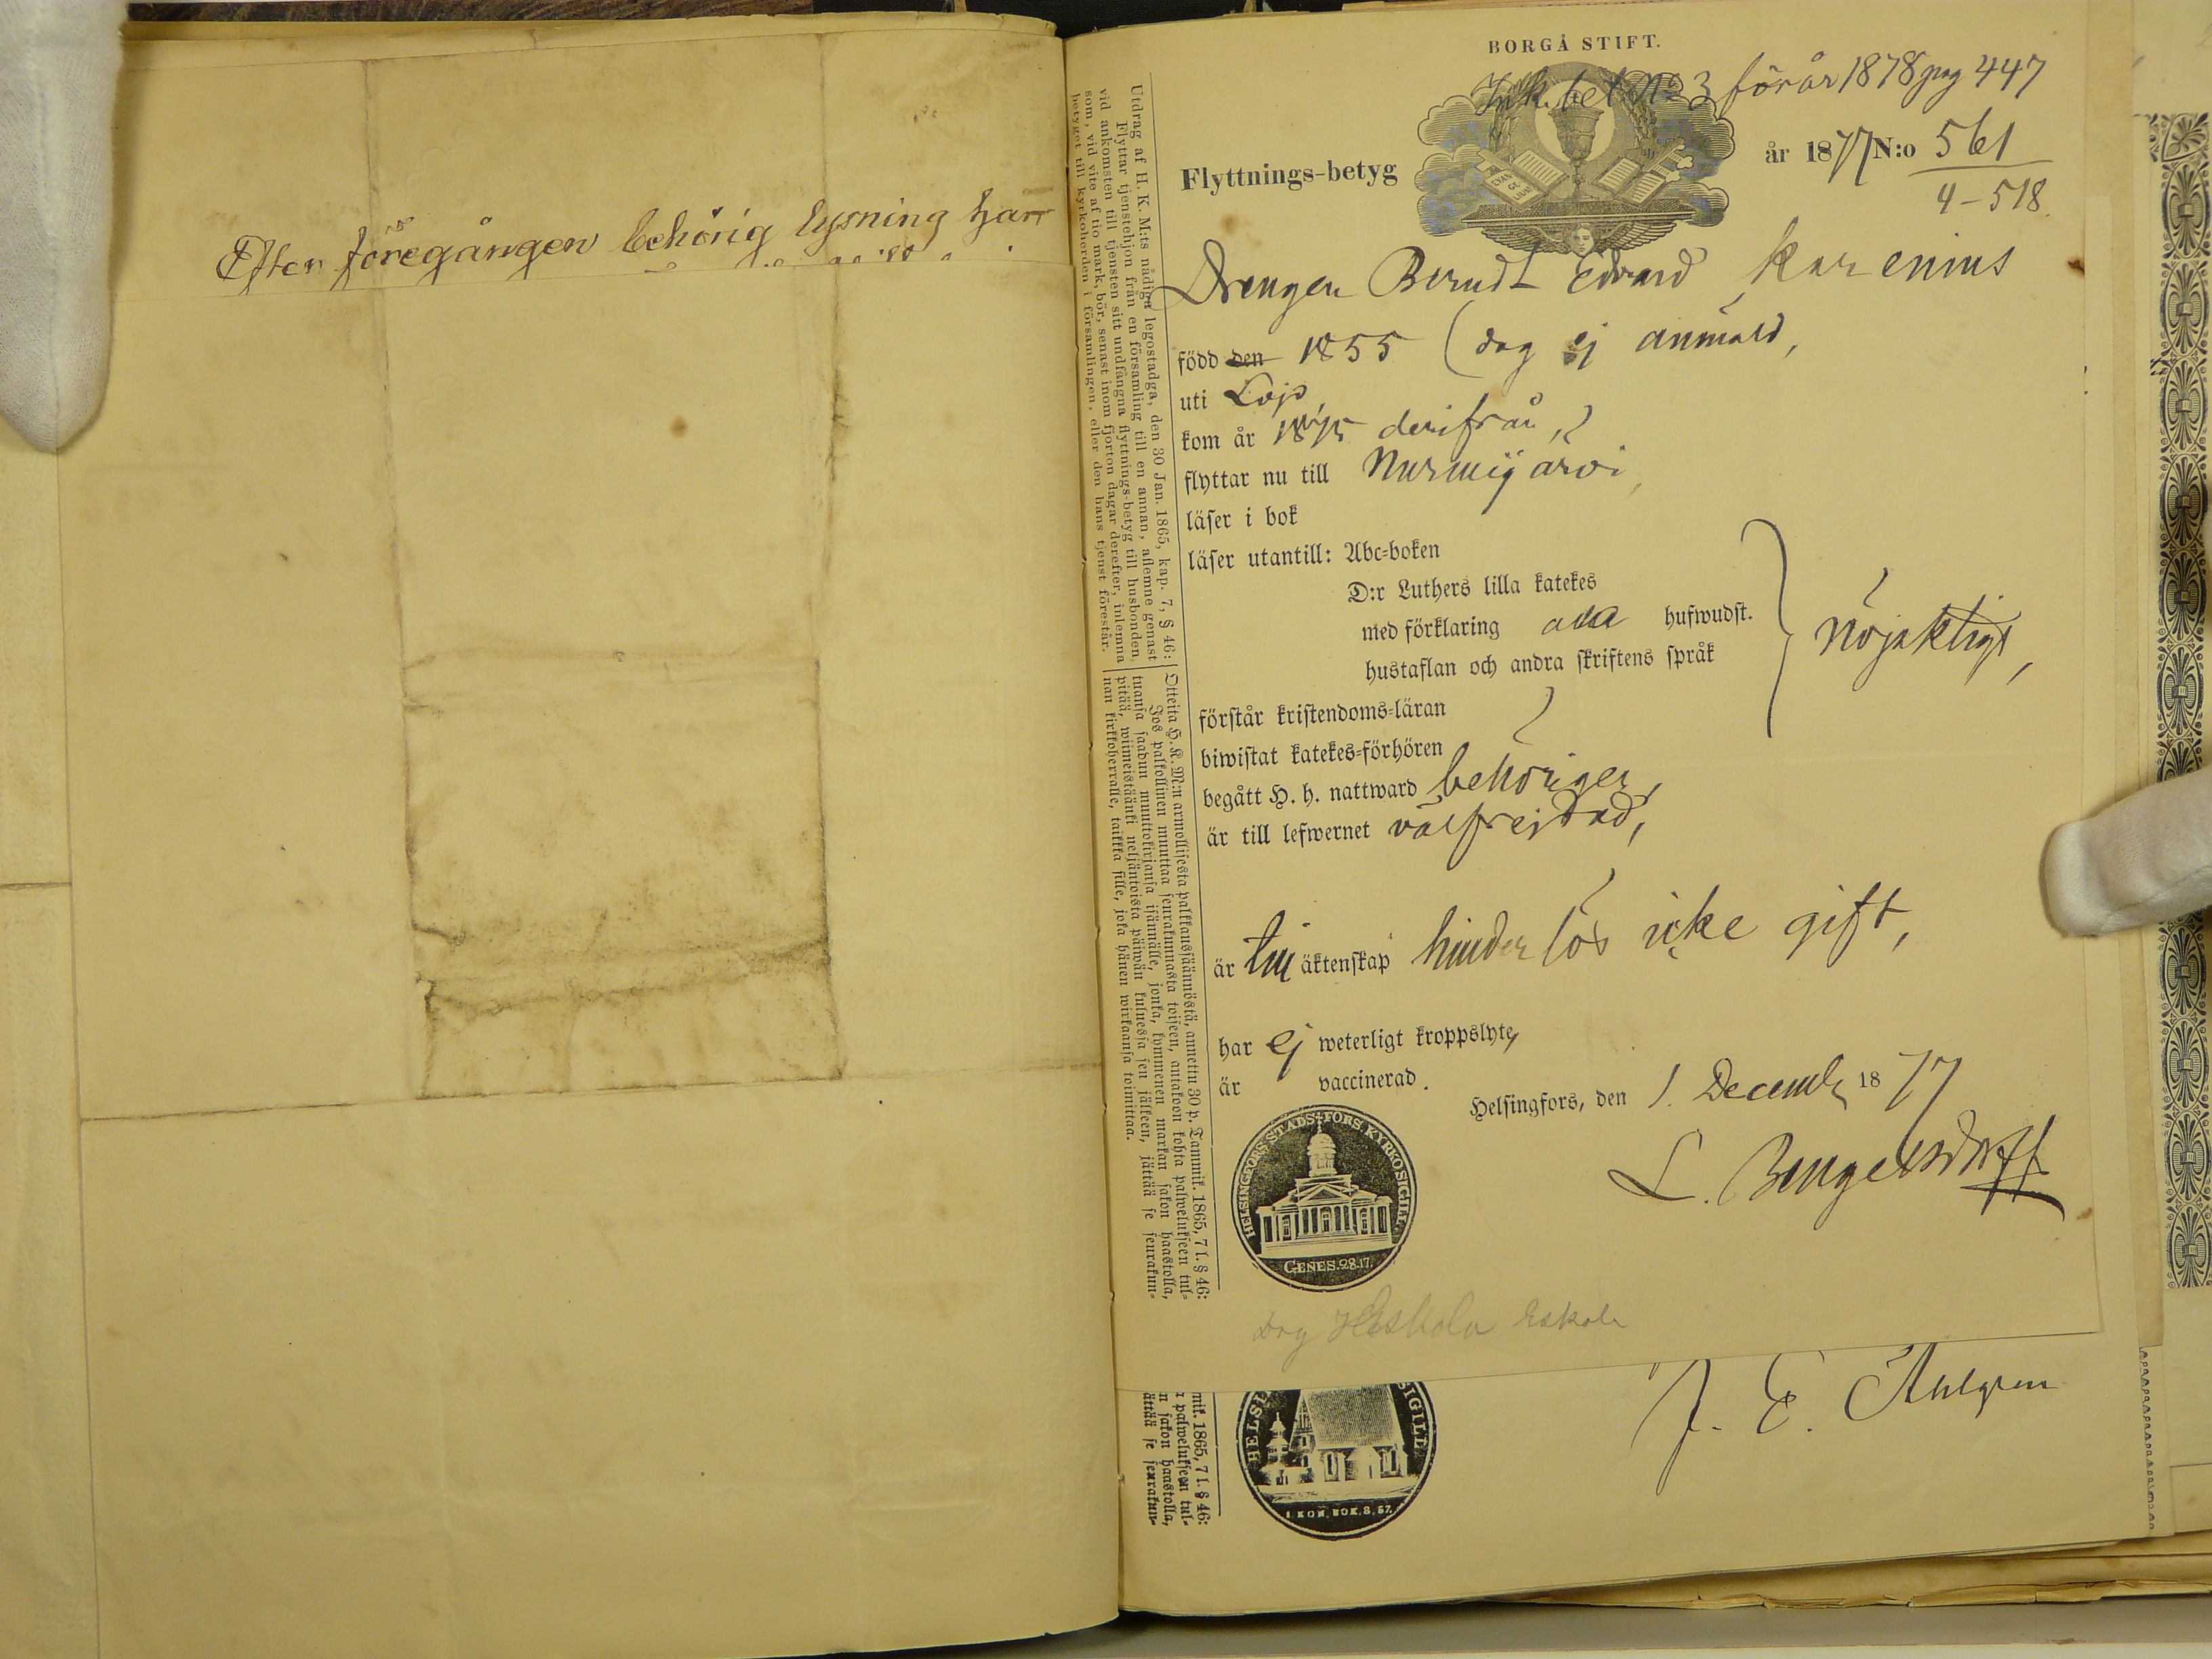 Efter föregången behörig lysning har
BORGÅ STIFT.
Ink. bet No 3 för år 1878 pag 447
Flyttnings-betyg
år 1877 N:o 561
4-518.
Drengen Berndt Edvard Karenius
född den 1855 (dag ej anmäld,
uti Lojo,
kom år 1875 derifrån,
flyttar nu till Nurmijärvi,
läser i bok
läser utantill: Abc-boken
D:r Luthers lilla katekes
med förklaring alla hufwudst.
hustaflan och andra skriftens språk
nöjaktigt,
förstår kristendoms-läran
biwistat katekes-förhören
begått H. h. nattward behörigen,
är till lefwernet välfrejdad,
är till äktenskap hinderlös icke gift,
har ej weterligt kroppslyte,
är vaccinerad.
Helsingfors, den 1. Decemb 1877
L. Bengelsdorff
HELSINGFORS STADS FÖRS. KYRKOSIGILL
GENES. 28.17.
Drg Heskola Eskola
Utdrag af H. K. M:ts nådiga legostadga, den 30 Jan. 1865, kap. 7, § 46:
Flyttar tjenstehjon från en församling till en annan, aflemne genast
vid ankomsten till tjensten sitt undfångna flyttnings-betyg till husbonden,
som, vid vite af tio mark, bör, senast inom fjorton dagar derefter, inlemna
betyget till kyrkoherden i församlingen, eller den hans tjenst förestår.
Otteita H. K. M:n armollisesta palkkaussäännöstä, annettu 30 p. Tammik. 1865, 7 l. § 46:
Jos palkollinen muuttaa seurakunnasta toiseen, antakoon kohta palwelukseen tul-
tuansa saadun muuttokirjansa isännälle, jonka, kymmenen markan sakon haastolla,
pitää, wiimeistäänki neljäntoista päiwän kuluessa sen jälkeen, jättää se seurakun-
nan kirkkoherralle, taikka sille, joka hänen wirkaansa toimittaa.
mik. 1865, 7 l. § 46:
palwelukseen tul-
n sakon haastolla,
ättää se seurakun-
HELSI
SIGILL
I. KON. BOK. 8. 57.
J. E.